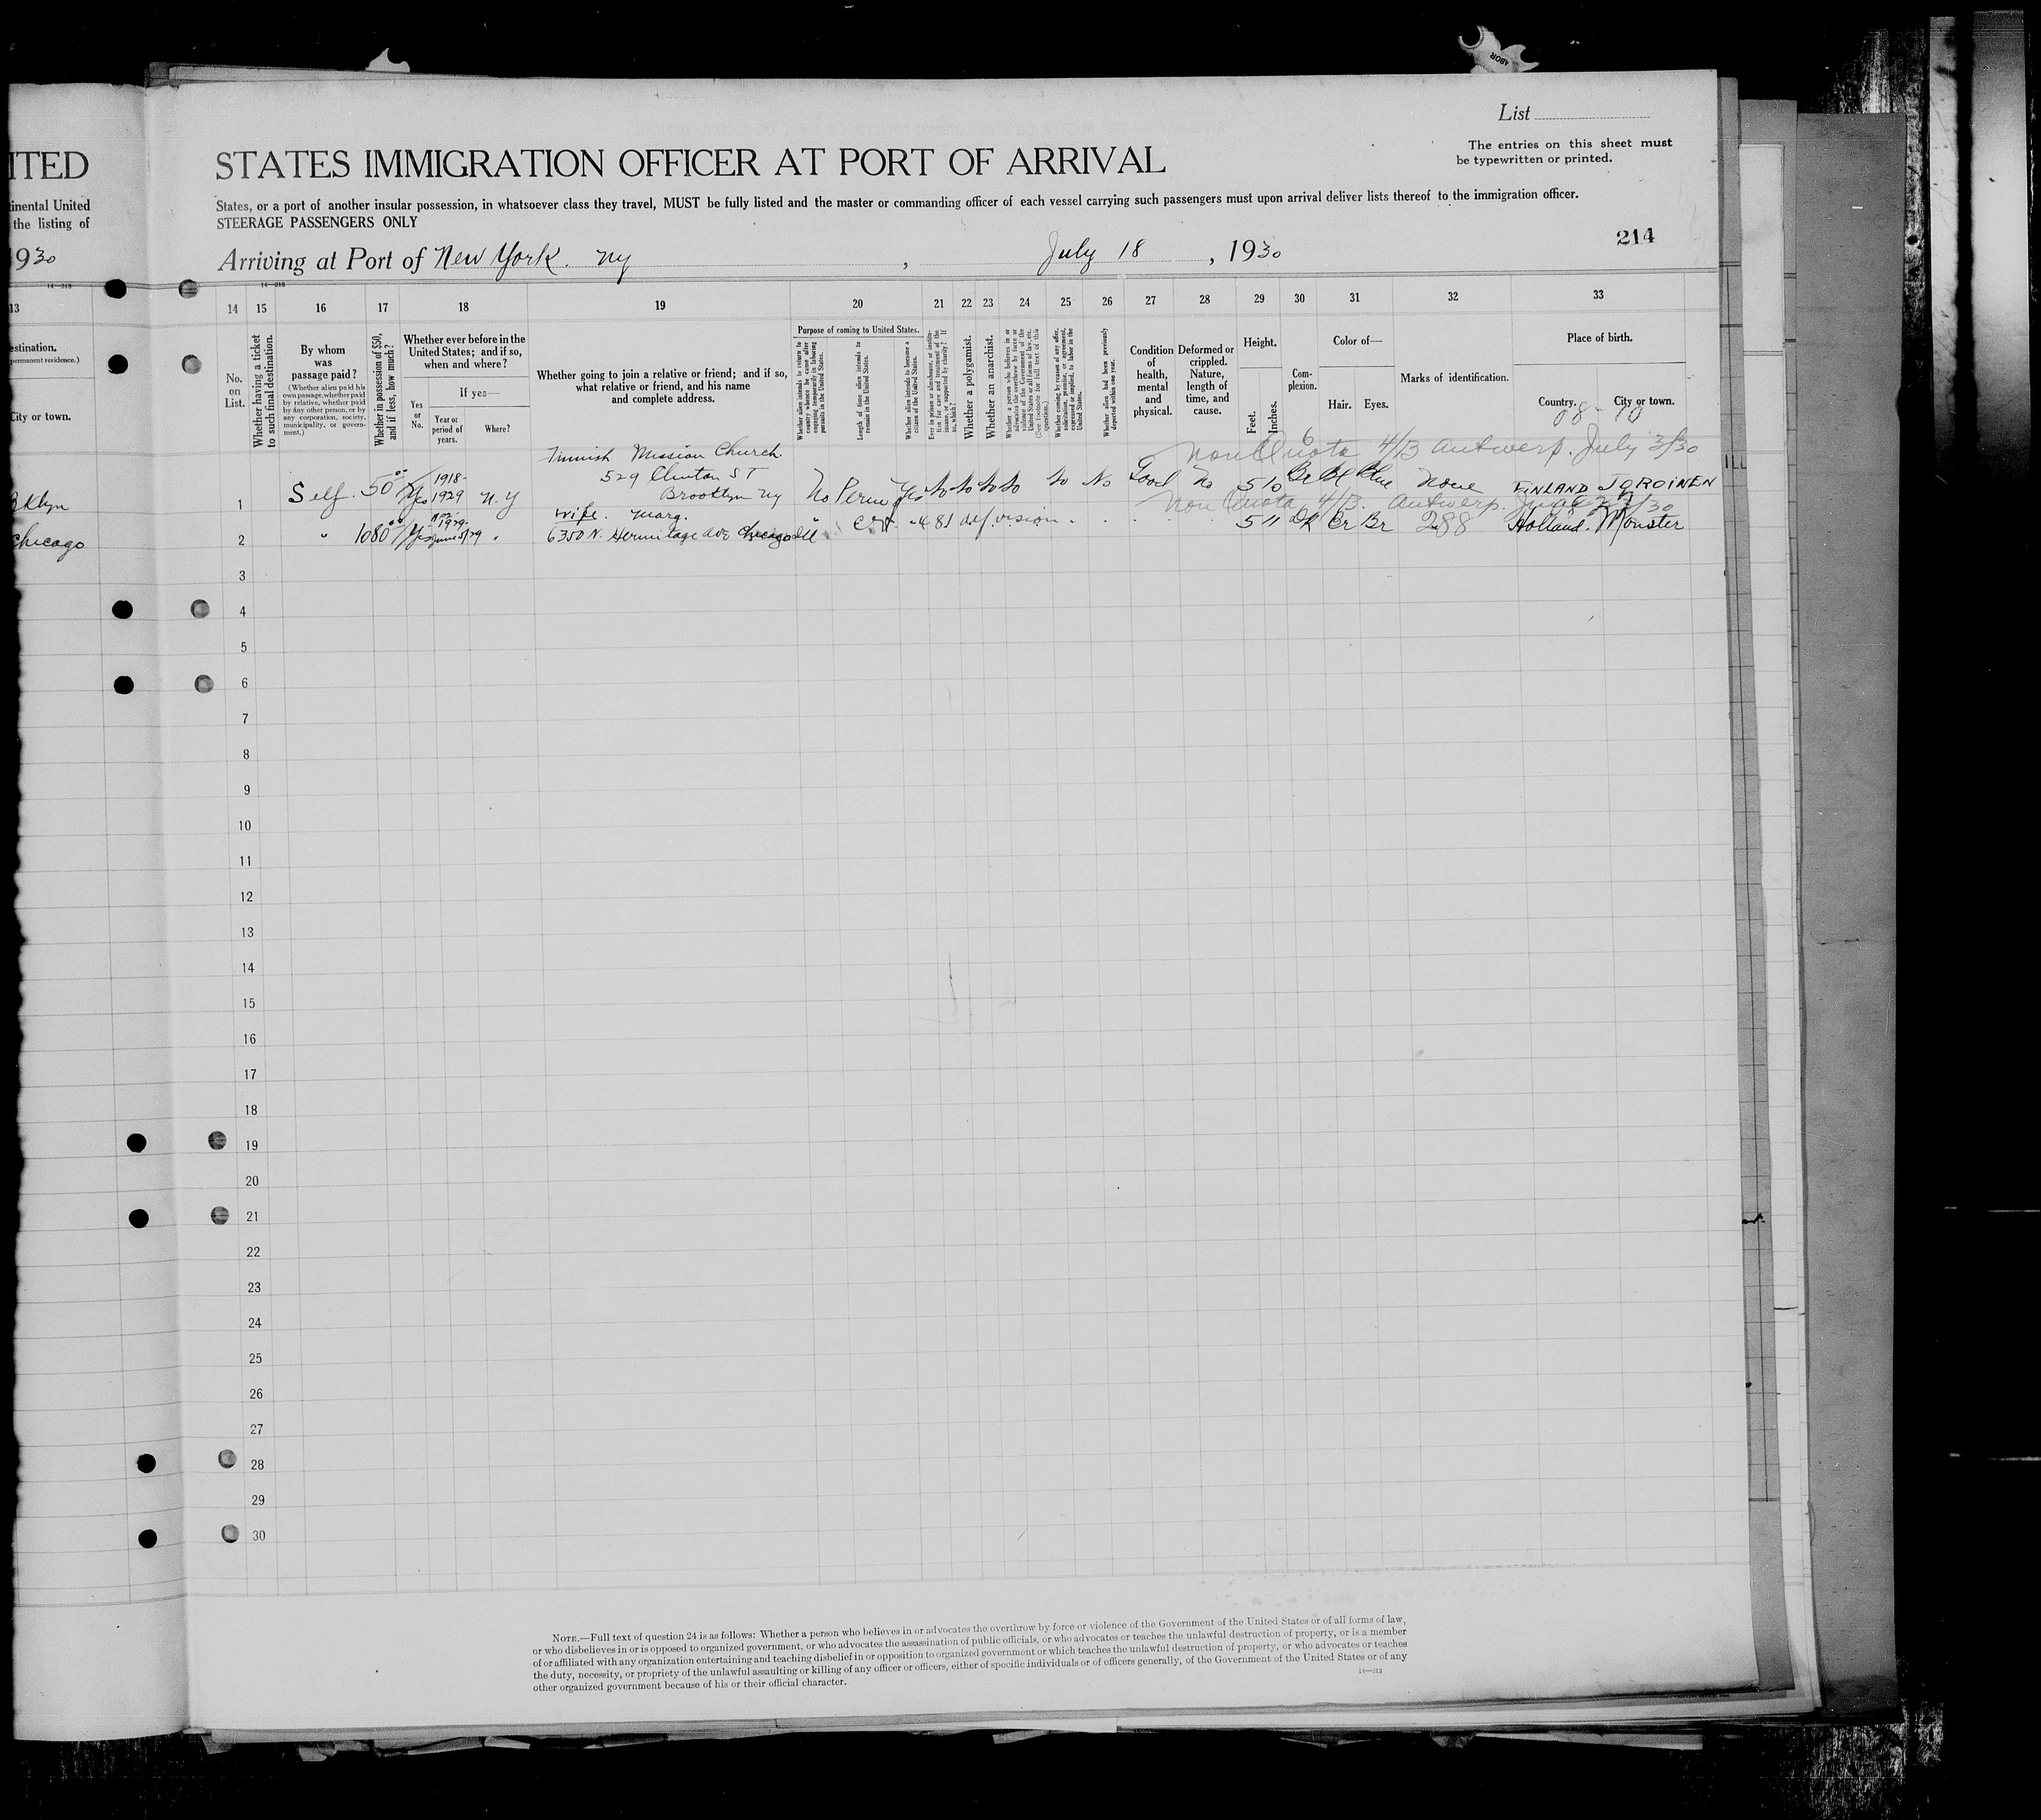 List
The entries on this sheet must
be typewritten or printed.
ITED
STATES IMMIGRATION OFFICER AT PORT OF ARRIVAL
tinental United
States, or a port of another insular possession, in whatsoever class they travel, MUST be fully listed and the master or commanding officer of each vessel carrying such passengers must upon arrival deliver lists thereof to the immigration officer.
the listing of
STEERAGE PASSENGERS ONLY
214
930
Arriving at Port of New York. Ny , July 18 , 1930
13 14 15 16 17 18 19 20 21 22 23 24 25 26 27 28 29 30 31 32 33
estination.
permanent residence.)
City or town.
No. on List.
Whether having a ticket to such final destination.
By whom was passage paid?
(Whether alien paid his own passage, whether paid by relative, whether paid by any other person, or by any corporation, society, municipality, or government.)
Whether in possession of $50, and if less, how much?
Whether ever before in the United States; and if so, when and where?
Yes or No.
If yes—
Year or period of years.
Where?
Whether going to join a relative or friend; and if so, what relative or friend, and his name and complete address.
Purpose of coming to United States.
Whether alien intends to return to country whence he came after engaging temporarily in laboring pursuits in the United States.
Length of time alien intends to remain in the United States.
Whether alien intends to become a citizen of the United States.
Ever in prison or almshouse, or institution for care and treatment of the insane, or supported by charity? If so, which?
Whether a polygamist.
Whether an anarchist.
Whether a person who believes in or advocates the overthrow by force or violence of the Government of the United States or all forms of law, etc. (See footnote for full text of this question.)
Whether coming by reason of any offer, solicitation, promise, or agreement, expressed or implied, to labor in the United States.
Whether alien had been previously deported within one year.
Condition of health, mental and physical.
Deformed or crippled. Nature, length of time, and cause.
Height.
Feet. Inches.
Complexion.
Color of—
Hair. Eyes.
Marks of identification.
Place of birth.
Country. City or town.
Non Quota 4/13 Antwerp. July 3/30
Finnish Mission Church.
529 Clinton ST
Brooklyn Ny
Bklyn 1 Self. 50 00 Yes 1918-1929 N.Y No Perm Yes No No No No No No Good No 5 10 Bl Blue None FINLAND JOROINEN
Non Quota 4/13. Antwerp. June
wife. Marg.
Chicago 2 " 1080 00 Yes 1929 " 6350 N. Hermitage Ave Chicago Ill " 481 def vision 5 11 Dk Br Br 288 Holland. Monster
3
4
5
6
7
8
9
10
11
12
13
14
15
16
17
18
19
20
21
22
23
24
25
26
27
28
29
30
NOTE.—Full text of question 24 is as follows: Whether a person who believes in or advocates the overthrow by force or violence of the Government of the United States or of all forms of law,
or who disbelieves in or is opposed to organized government, or who advocates the assassination of public officials, or who advocates or teaches the unlawful destruction of property, or is a member
of or affiliated with any organization entertaining and teaching disbelief in or opposition to organized government or which teaches the unlawful destruction of property, or who advocates or teaches
the duty, necessity, or propriety of the unlawful assaulting or killing of any officer or officers, either of specific individuals or of officers generally, of the Government of the United States or of any
other organized government because of his or their official character.
14—213